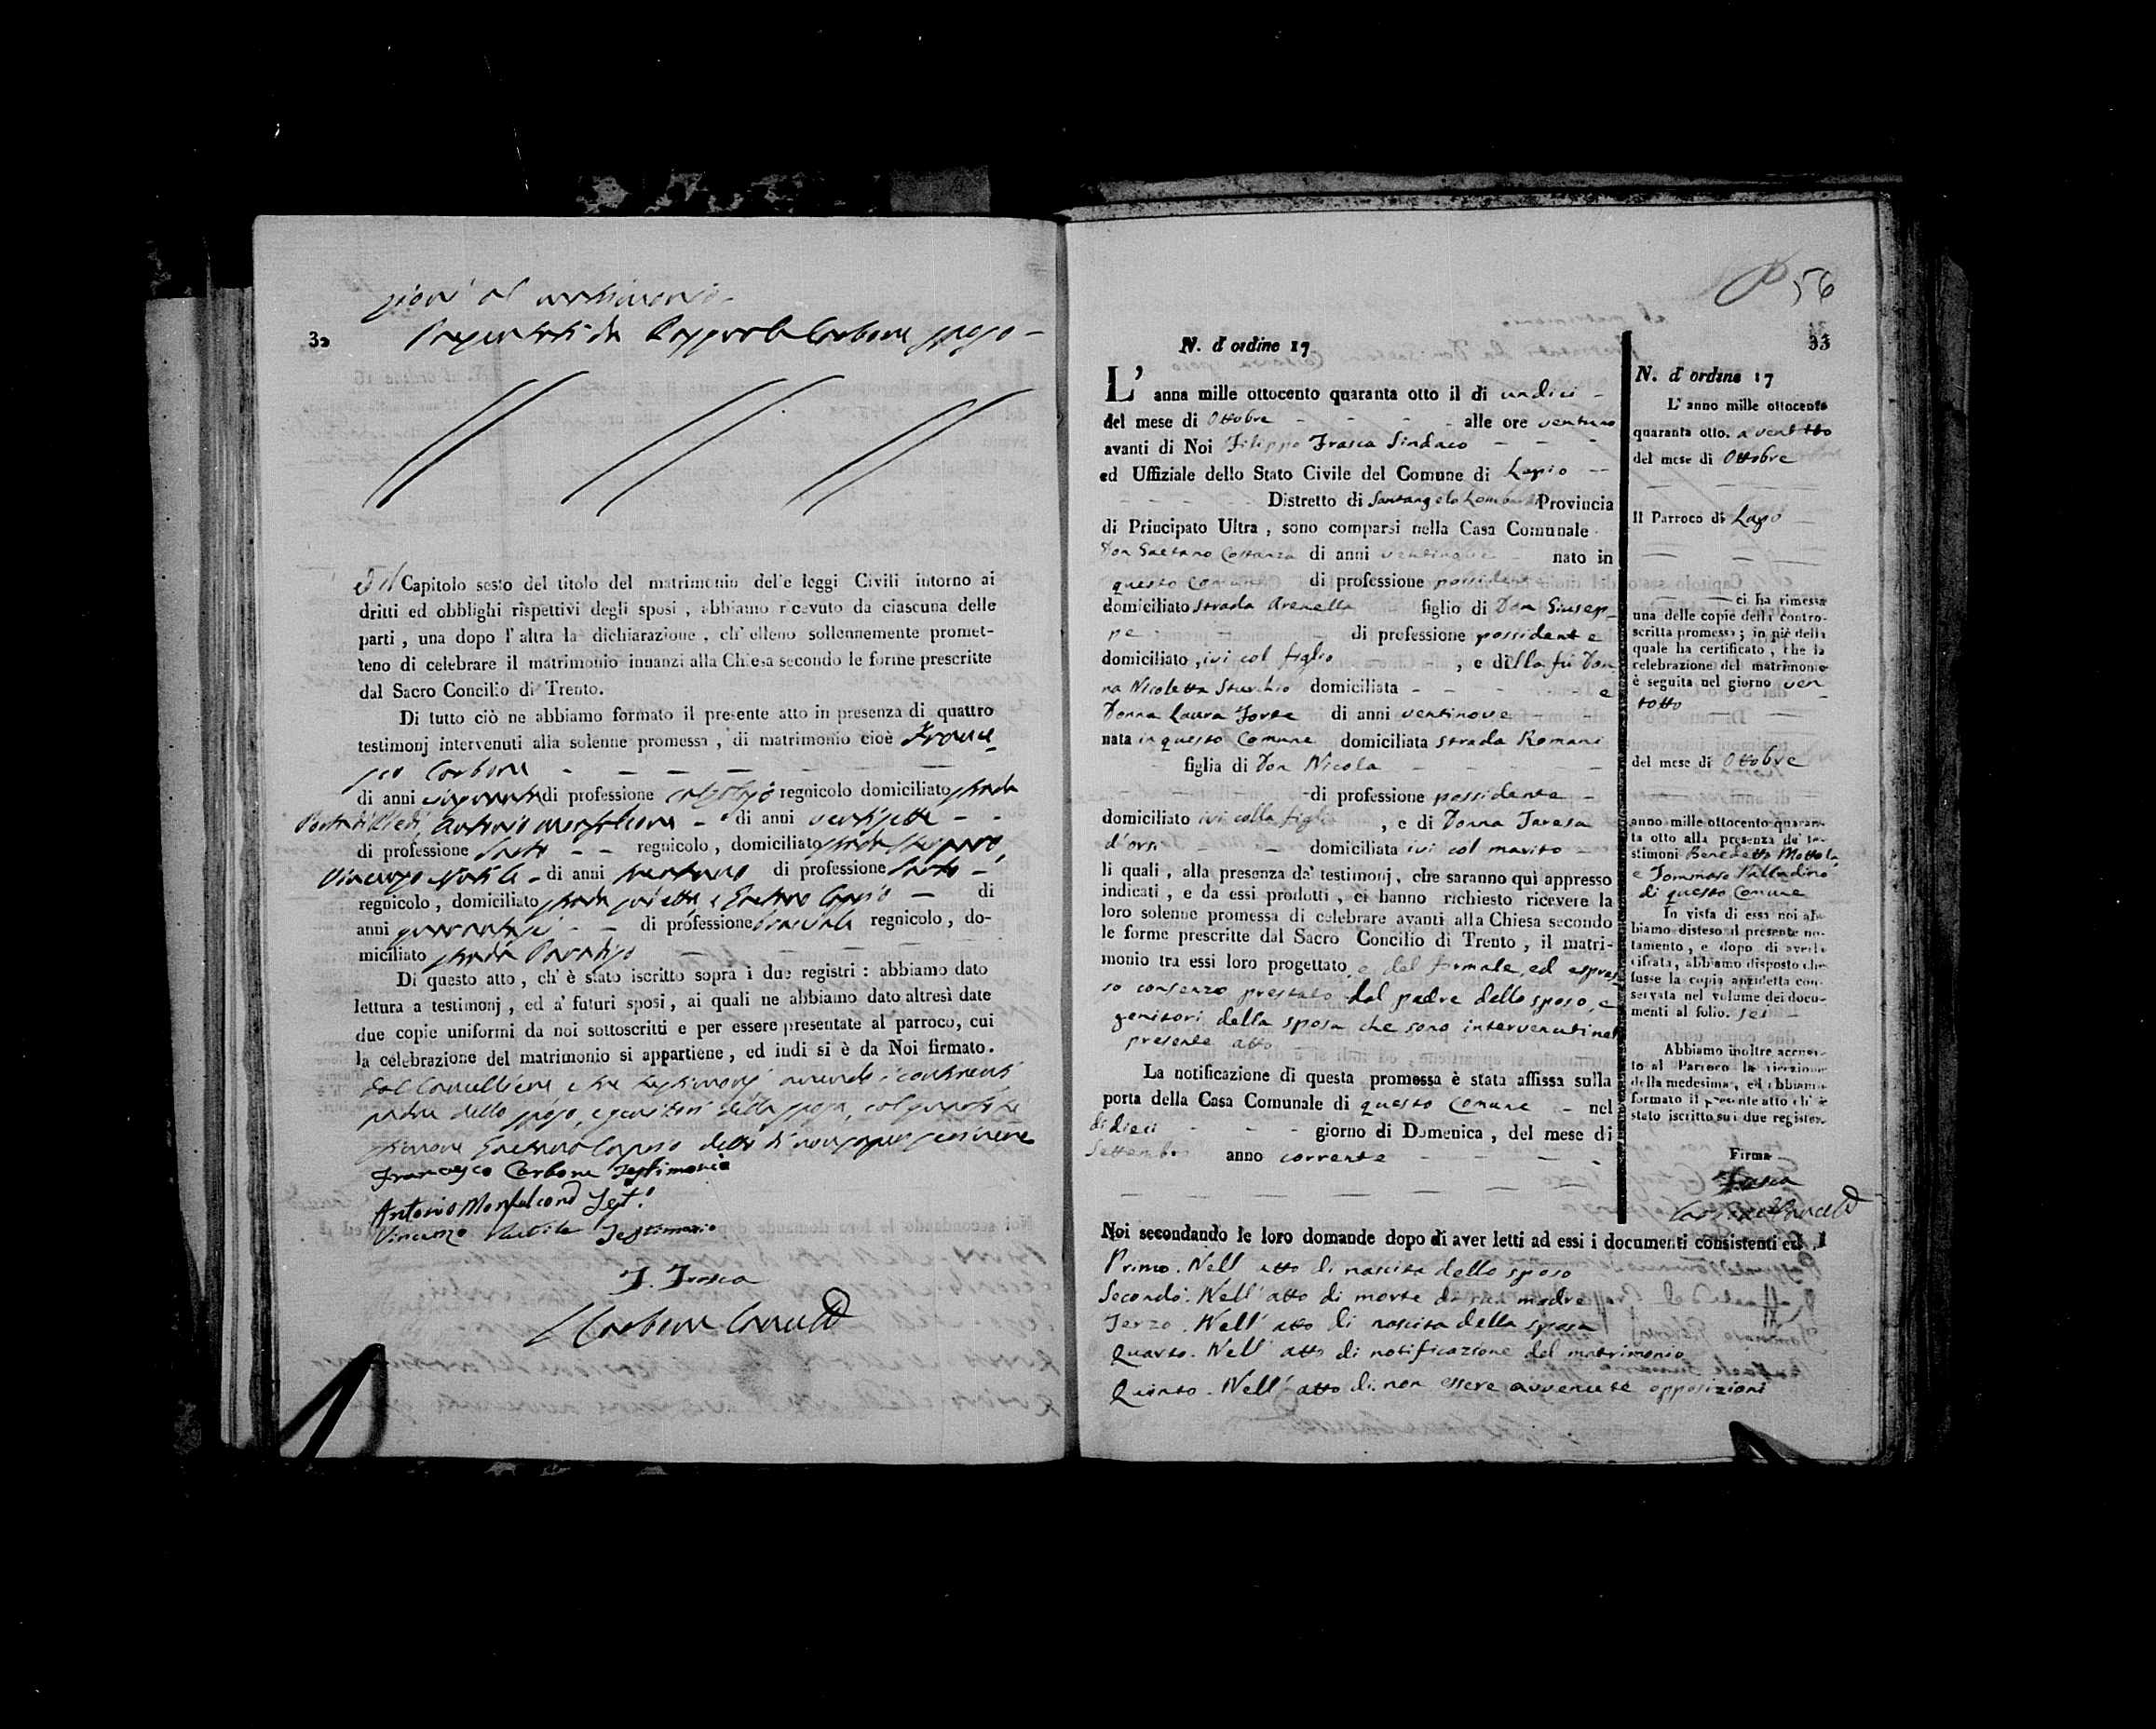 zioni al matrimonio
Presentati da Carbone sposo
32
ed il Capitolo sesto del titolo del matrimonio delle leggi Civili intorno ai
dritti ed obblighi rispettivi degli sposi, abbiamo ricevuto da ciascuna delle
parti, una dopo l'altra la dichiarazione, ch'elleno sollennemente promet-
teno di celebrare il matrimonio innanzi alla Chiesa secondo le forme prescritte
dal Sacro Concilio di Trento.
Di tutto ciò ne abbiamo formato il presente atto in presenza di quattro
testimonj intervenuti alla solenne promessa, di matrimonio cioè France
sco Carbone
di anni cinquanta di professione calzolajo regnicolo domiciliato strada
Antonio Monfalcone di anni ventisette
di professione Sarto regnicolo, domiciliato strada
Vincenzo di anni trentuno di professione Sarto
regnicolo, domiciliato strada e Gaetano Caputo di
anni quarantasei di professione bracciale regnicolo, do-
miciliato strada Paradiso
Di questo atto, ch'è stato iscritto sopra i due registri: abbiamo dato
lettura a testimonj, ed a' futuri sposi, ai quali ne abbiamo dato altresì date
due copie uniformi da noi sottoscritti e per essere presentate al parroco, cui
la celebrazione del matrimonio si appartiene, ed indi si è da Noi firmato.
dal Cancelliere e tre testimonj avendo i contraenti
padre dello sposo, e genitori della sposa, col quarto te
stimone Gaetano Caputo detto di non saper scrivere
Francesco Carbone Testimonio
Antonio Monfalcone Test.
Vincenzo Testimonio
F. Frasca
Carbone
56
33
N. d'ordine 17
L'anna mille ottocento quaranta otto il di undici
del mese di Ottobre alle ore ventuno
avanti di Noi Filippo Frasca Sindaco
ed Uffiziale dello Stato Civile del Comune di Lapio
Distretto di Santangelo Lombardi Provincia
di Principato Ultra, sono comparsi nella Casa Comunale
Don Gaetano Costanza di anni ventinove nato in
questo Comune di professione possidente
domiciliato strada Arenella figlio di Don Giusep-
pe di professione possidente
domiciliato, ivi col figlio, e della fù Don
na Nicoletta domiciliata e
Donna Laura Forte di anni ventinove
nata in questo Comune domiciliata strada Romani
figlia di Don Nicola
di professione possidente
domiciliato ivi colla figlia, e di Donna Taresa
d'Orsi domiciliata ivi col marito
li quali, alla presenza da' testimonj, che saranno qui appresso
indicati, e da essi prodotti, ci hanno richiesto ricevere la
loro solenne promessa di celebrare avanti alla Chiesa secondo
le forme prescritte dal Sacro Concilio di Trento, il matri-
monio tra essi loro progettato, e del formale, ed espres
so consenzo prestato dal padre dello sposo, e
genitori della sposa che sono intervenuti nel
presente atto
La notificazione di questa promessa è stata affissa sulla
porta della Casa Comunale di questo Comune nel
di dieci giorno di Domenica, del mese di
Settembre anno corrente
Noi secondando le loro domande dopo di aver letti ad essi i documenti consistenti ed
Primo. Nell'atto di nascita dello sposo
Secondo. Nell'atto di morte di sua madre
Terzo. Nell'atto di nascita della sposa
Quarto. Nell'atto di notificazione del matrimonio
Quinto. Nell'atto di non essere avvenute opposizioni
N. d'ordine 17
L'anno mille ottocento
quaranta otto. a ventotto
del mese di Ottobre
Il Parroco di Lapio
ci ha rimessa
una delle copie della contro-
scritta promessa; in piè della
quale ha certificato, che la
celebrazione del matrimonio
è seguita nel giorno ven
totto
del mese di Ottobre
anno mille ottocento quaran-
ta otto alla presenza de' te-
stimoni Benedetto Mottola
e Tommaso Palladino
di questo Comune
In vista di essa noi ab-
biamo disteso il presente no-
tamento, e dopo di averla
cifrata, abbiamo disposto che
fusse la copia anzidetta con-
servata nel volume dei docu-
menti al folio. sei
Abbiamo inoltre accusa-
to al Parroco la ricezione
della medesima, ed abbiamo
formato il presente atto ch'è
stato iscritto su i due registri.
Firma
Frasca